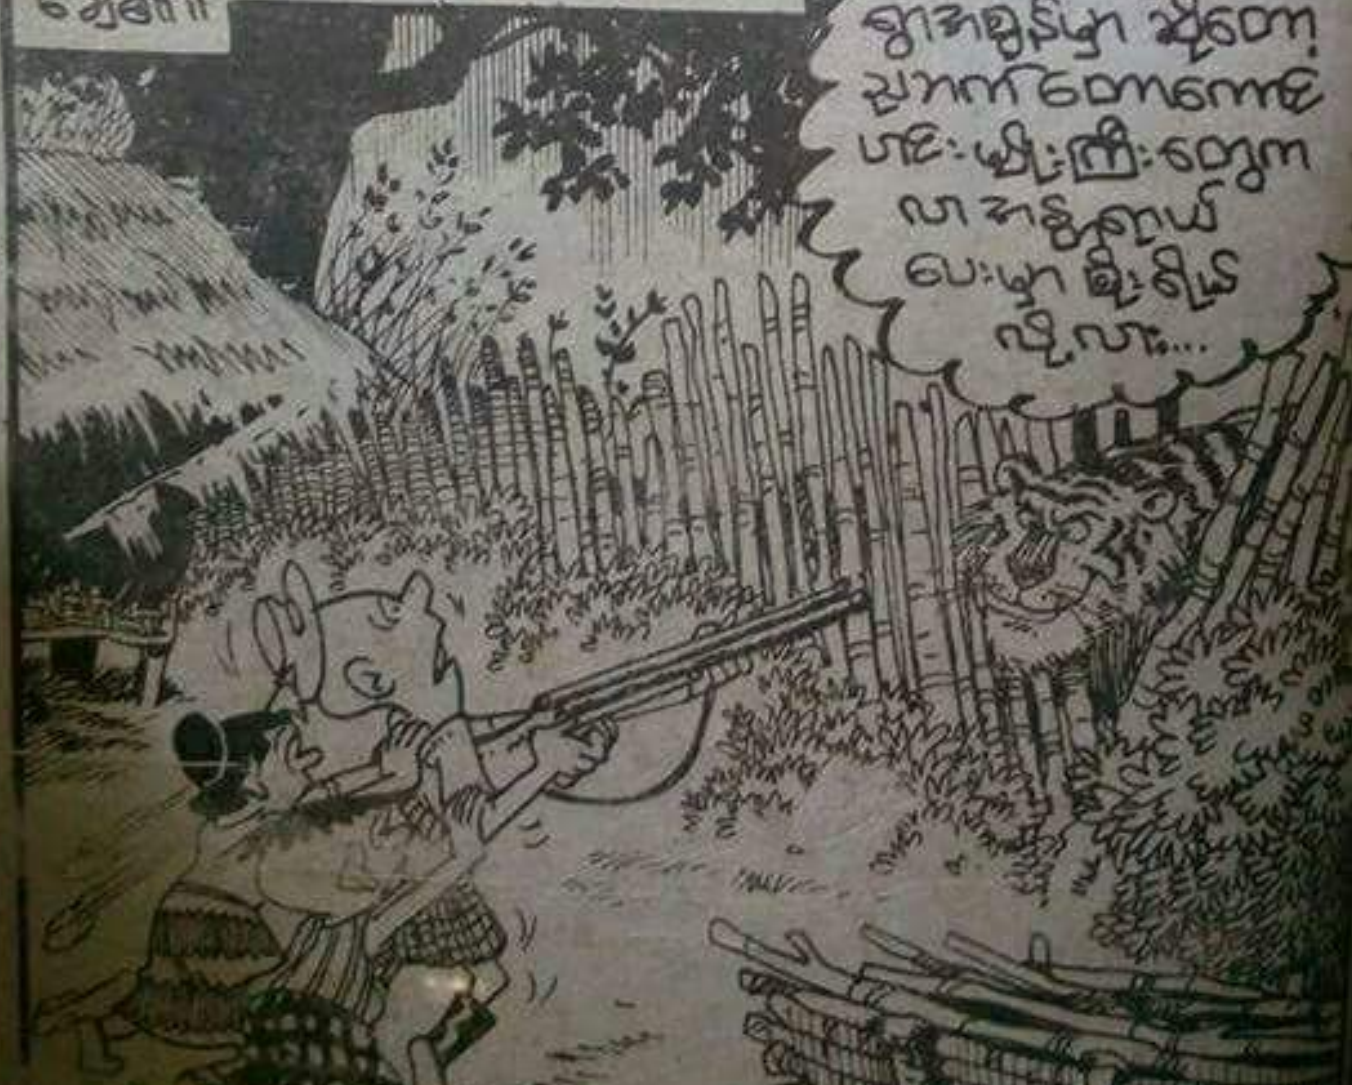 တွေ့မလား
ရွာအစွန်မှာ ဆိုတော့
ညဘက် တောကောင်
ဟင်းမျိုးကြီးတွေက
လာ အန္တရာယ်
ပေးမှာ စိုးရိမ်
လို့လား...